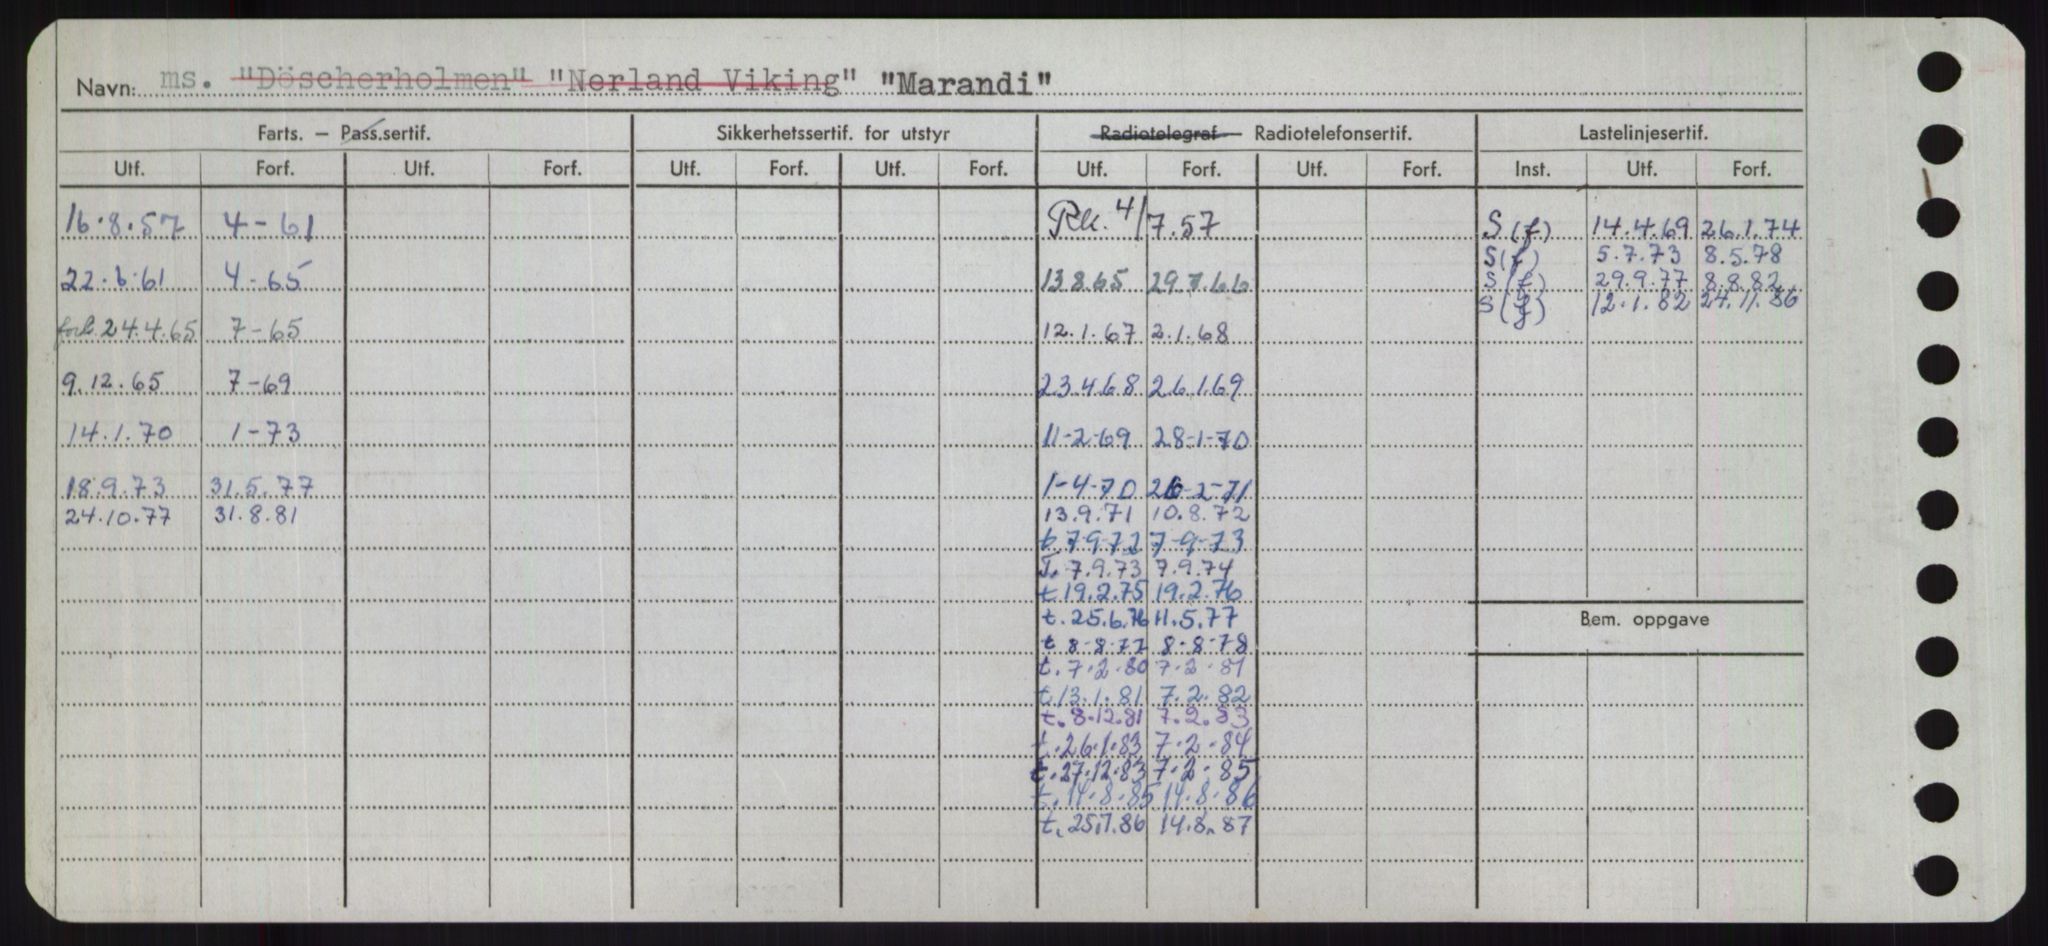 Navn: ms. "Döscherholmen" "Nerland Viking" "Marandi"
Farts. — Pass.sertif. Sikkerhetssertif. for utstyr Radiotelegraf — Radiotelefonsertif. Lastelinjesertif.
Utf. Forf. Utf. Forf. Utf. Forf. Utf. Forf. Utf. Forf. Utf. Forf. Inst. Utf. Forf.
16.8.57 4-61
22.6.61 4-65
24.4.65 7-65
9.12.65 7-69
14.1.70 1-73
18.9.73 31.5.77
24.10.77 31.8.81
4/7.57
13.8.65 29.7.66
12.1.67 2.1.68
23.4.68 26.1.69
11-2-69 28-1-70
1-4-70 26-2-71
13.9.71 10.8.72
t. 7-9-72 7-9-73
T. 7.9.73 7.9.74
t. 19.2.75 19.2.76
t. 25.6.76 11.5.77
t 8-8-77 8-8-78
t. 7.2.80 7.2.81
t. 13.1.81 7.2.82
t. 8.12.81 7.2.83
t. 26.1.83 7.2.84
t. 27.12.83 7.2.85
t. 14.8.85 14.8.86
t. 25.7.86 14.8.87
S (f) 14.4.69 26.1.74
S (f) 5.7.73 8.5.78
S (f) 29.9.77 8.8.82
S (f) 12.1.82 24.11.86
Bem. oppgave